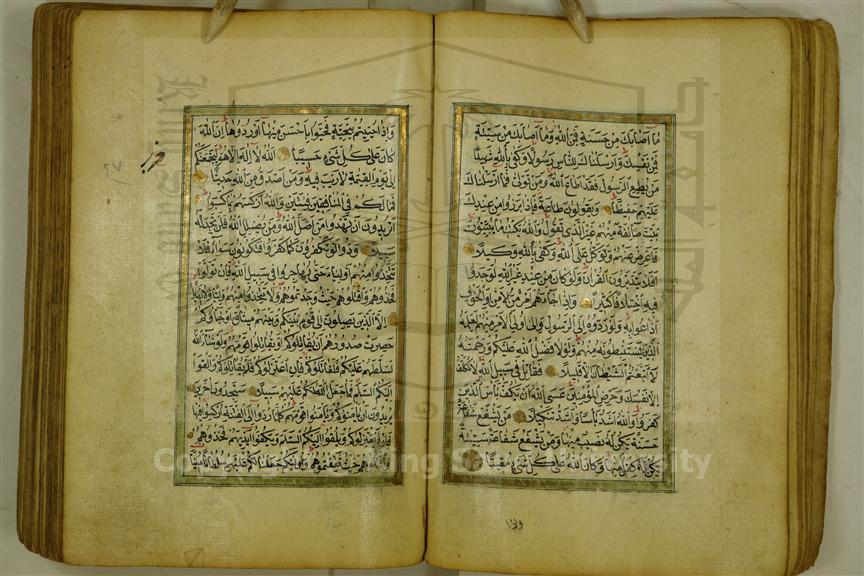 ما اصابك من حسنة فمن الله وما اصابك من سيئة
فمن نفسك وارسلناك للناس رسولا وكفى بالله شهيدا
من يطع الرسول فقد اطاع الله ومن تولى فما ارسلناك
عليهم حفيظا ويقولون طاعة فاذا برزوا من عندك
بيت طائفة منهم غير الذى تقول والله يكتب ما يبيتون
فاعرض عنهم وتوكل على الله وكفى بالله وكيلا
افلا يتدبرون القران ولو كان من عند غير الله لوجدوا
فيه اختلافا كثيرا واذا جاءهم امر من الامن او الخوف
اذاعوا به ولو ردوه الى الرسول والى اولى الامر منهم لعلمه
الذين يستنبطونه منهم ولولا فضل الله عليكم ورحمته
لاتبعتم الشيطان الا قليلا فقاتل فى سبيل الله لا تكلف
الا نفسك وحرض المؤمنين عسى الله ان يكف باس الذين
كفروا والله اشد باسا واشد تنكيلا من يشفع شفاعة
حسنة يكن له نصيب منها ومن يشفع شفاعة سيئة
يكن له كفل منها وكان الله على كل شىء مقيتا
واذا
واذا حييتم بتحية فحيوا باحسن منها او ردوها ان الله
كان على كل شىء حسيبا الله لا اله الا هو ليجمعنكم
الى يوم القيمة لا ريب فيه ومن اصدق من الله حديثا
فما لكم فى المنافقين فئتين والله اركسهم بما كسبوا
اتريدون ان تهدوا من اضل الله ومن يضلل الله فلن تجد له
سبيلا ودوا لو تكفرون كما كفروا فتكونون سواء فلا
تتخذوا منهم اولياء حتى يهاجروا فى سبيل الله فان تولوا
فخذوهم واقتلوهم حيث وجدتموهم ولا تتخذوا منهم وليا ولا نصيرا
الا الذين يصلون الى قوم بينكم وبينهم ميثاق او جاؤكم
حصرت صدورهم ان يقاتلوكم او يقاتلوا قومهم ولو شاء الله
لسلطهم عليكم فلقاتلوكم فان اعتزلوكم فلم يقاتلوكم والقوا
اليكم السلم فما جعل الله لكم عليهم سبيلا ستجدون اخرين
يريدون ان يامنوكم ويامنوا قومهم كلما ردوا الى الفتنة اركسوا فيها
فان لم يعتزلوكم ويلقوا اليكم السلم ويكفوا ايديهم فخذوهم
واقتلوهم حيث ثقفتموهم واولئكم جعلنا لكم عليهم سلطانا مبينا
حزب
Copyright © King Saud University